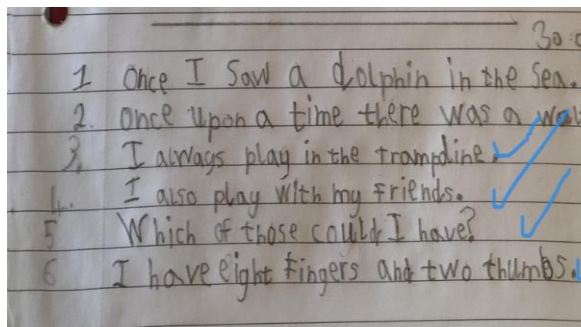 30.
1 Once I Saw a dolphin in the Sea.
2. Once Upon a time there was a
3. I always play in the trampoline.
4. I also play with my Friends.
5 Which of those could I have?
6 I have eight fingers and two thumbs.